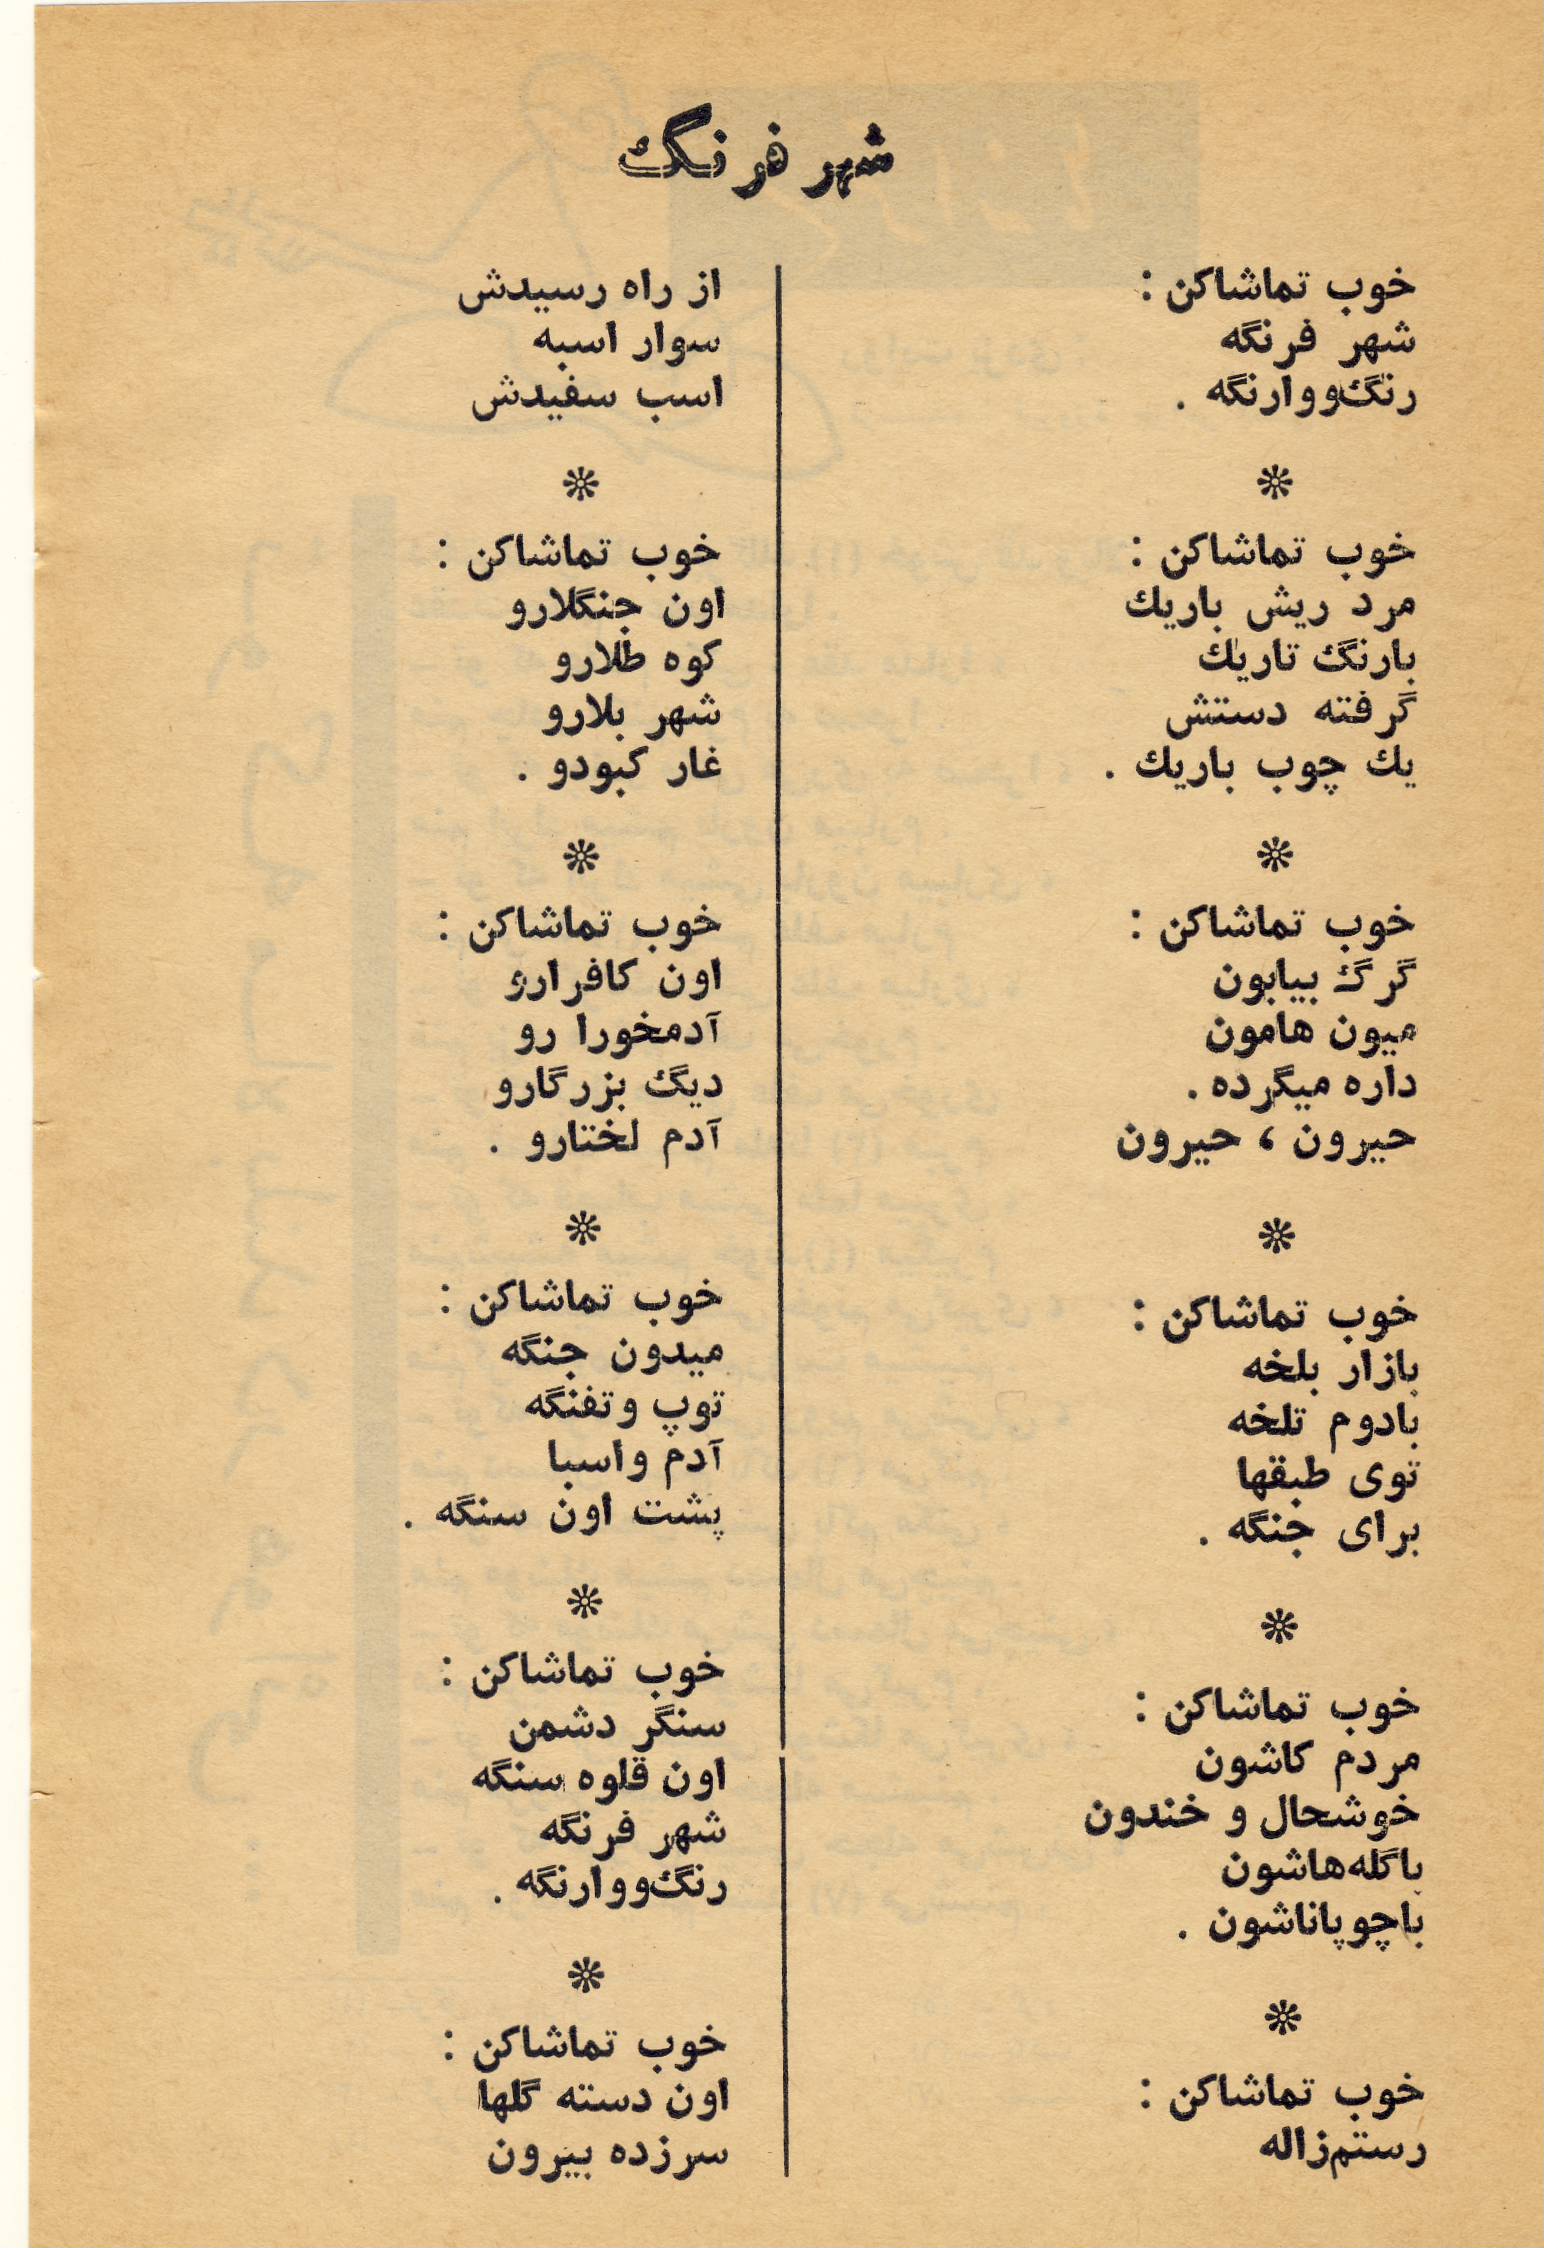 شهر فرنگ
خوب تماشاکن :
شهر فرنگه
رنگ‌ووارنگه .
خوب تماشاکن :
مرد ریش باریك
بارنگ تاریك
گرفته دستش
یك چوب باریك .
خوب تماشاکن :
گرگ بیابون
میون هامون
داره میگرده .
حیرون ، حیرون
خوب تماشاکن :
بازار بلخه
بادوم تلخه
توی طبقها
برای جنگه .
خوب تماشاکن :
مردم کاشون
خوشحال و خندون
باگله‌هاشون
باچوپاناشون .
خوب تماشاکن :
رستم‌زاله
از راه رسیدش
سوار اسبه
اسب سفیدش
خوب تماشاکن :
اون جنگلارو
کوه طلارو
شهر بلارو
غار کبودو .
خوب تماشاکن :
اون کافرارو
آدمخورا رو
دیگ بزرگارو
آدم لختارو .
خوب تماشاکن :
میدون جنگه
توپ وتفنگه
آدم واسبا
پشت اون سنگه .
خوب تماشاکن :
سنگر دشمن
اون قلوه سنگه
شهر فرنگه
رنگ‌ووارنگه .
خوب تماشاکن :
اون دسته گلها
سرزده بیرون